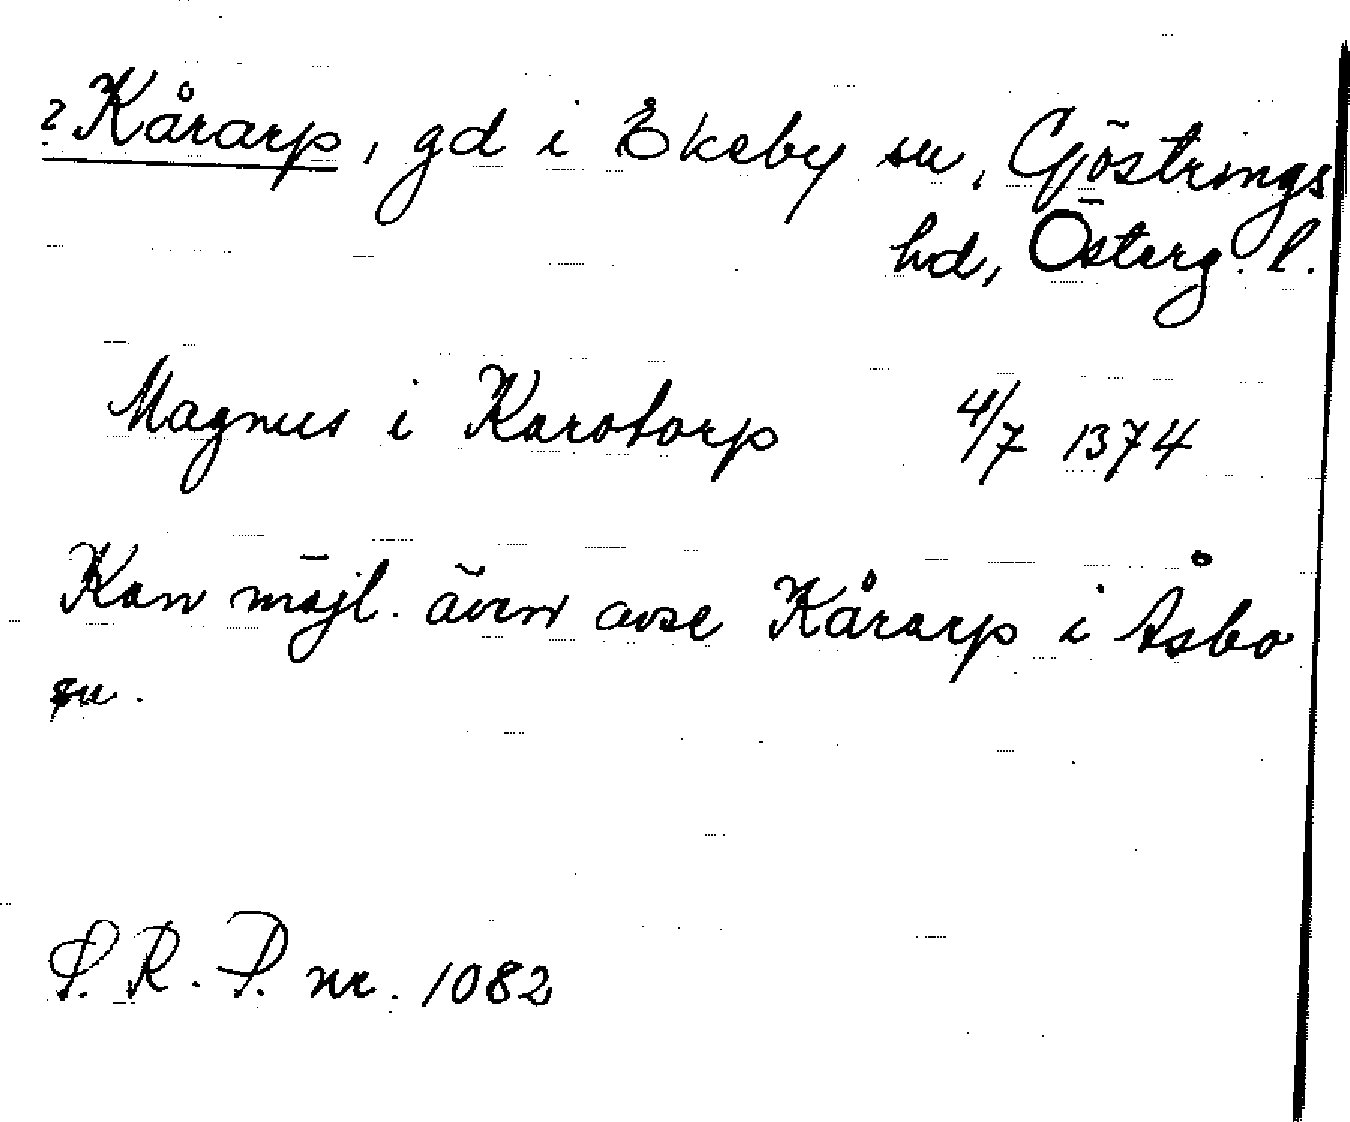 ? Kårarp, gd i Ekeby sn, Göstrings
hd, Österg. l.
Magnus i Karotorp 4/7 1374
Kan möjl. även avse Kårarp i Åsbo
sn.
S. R. P. nr. 1082